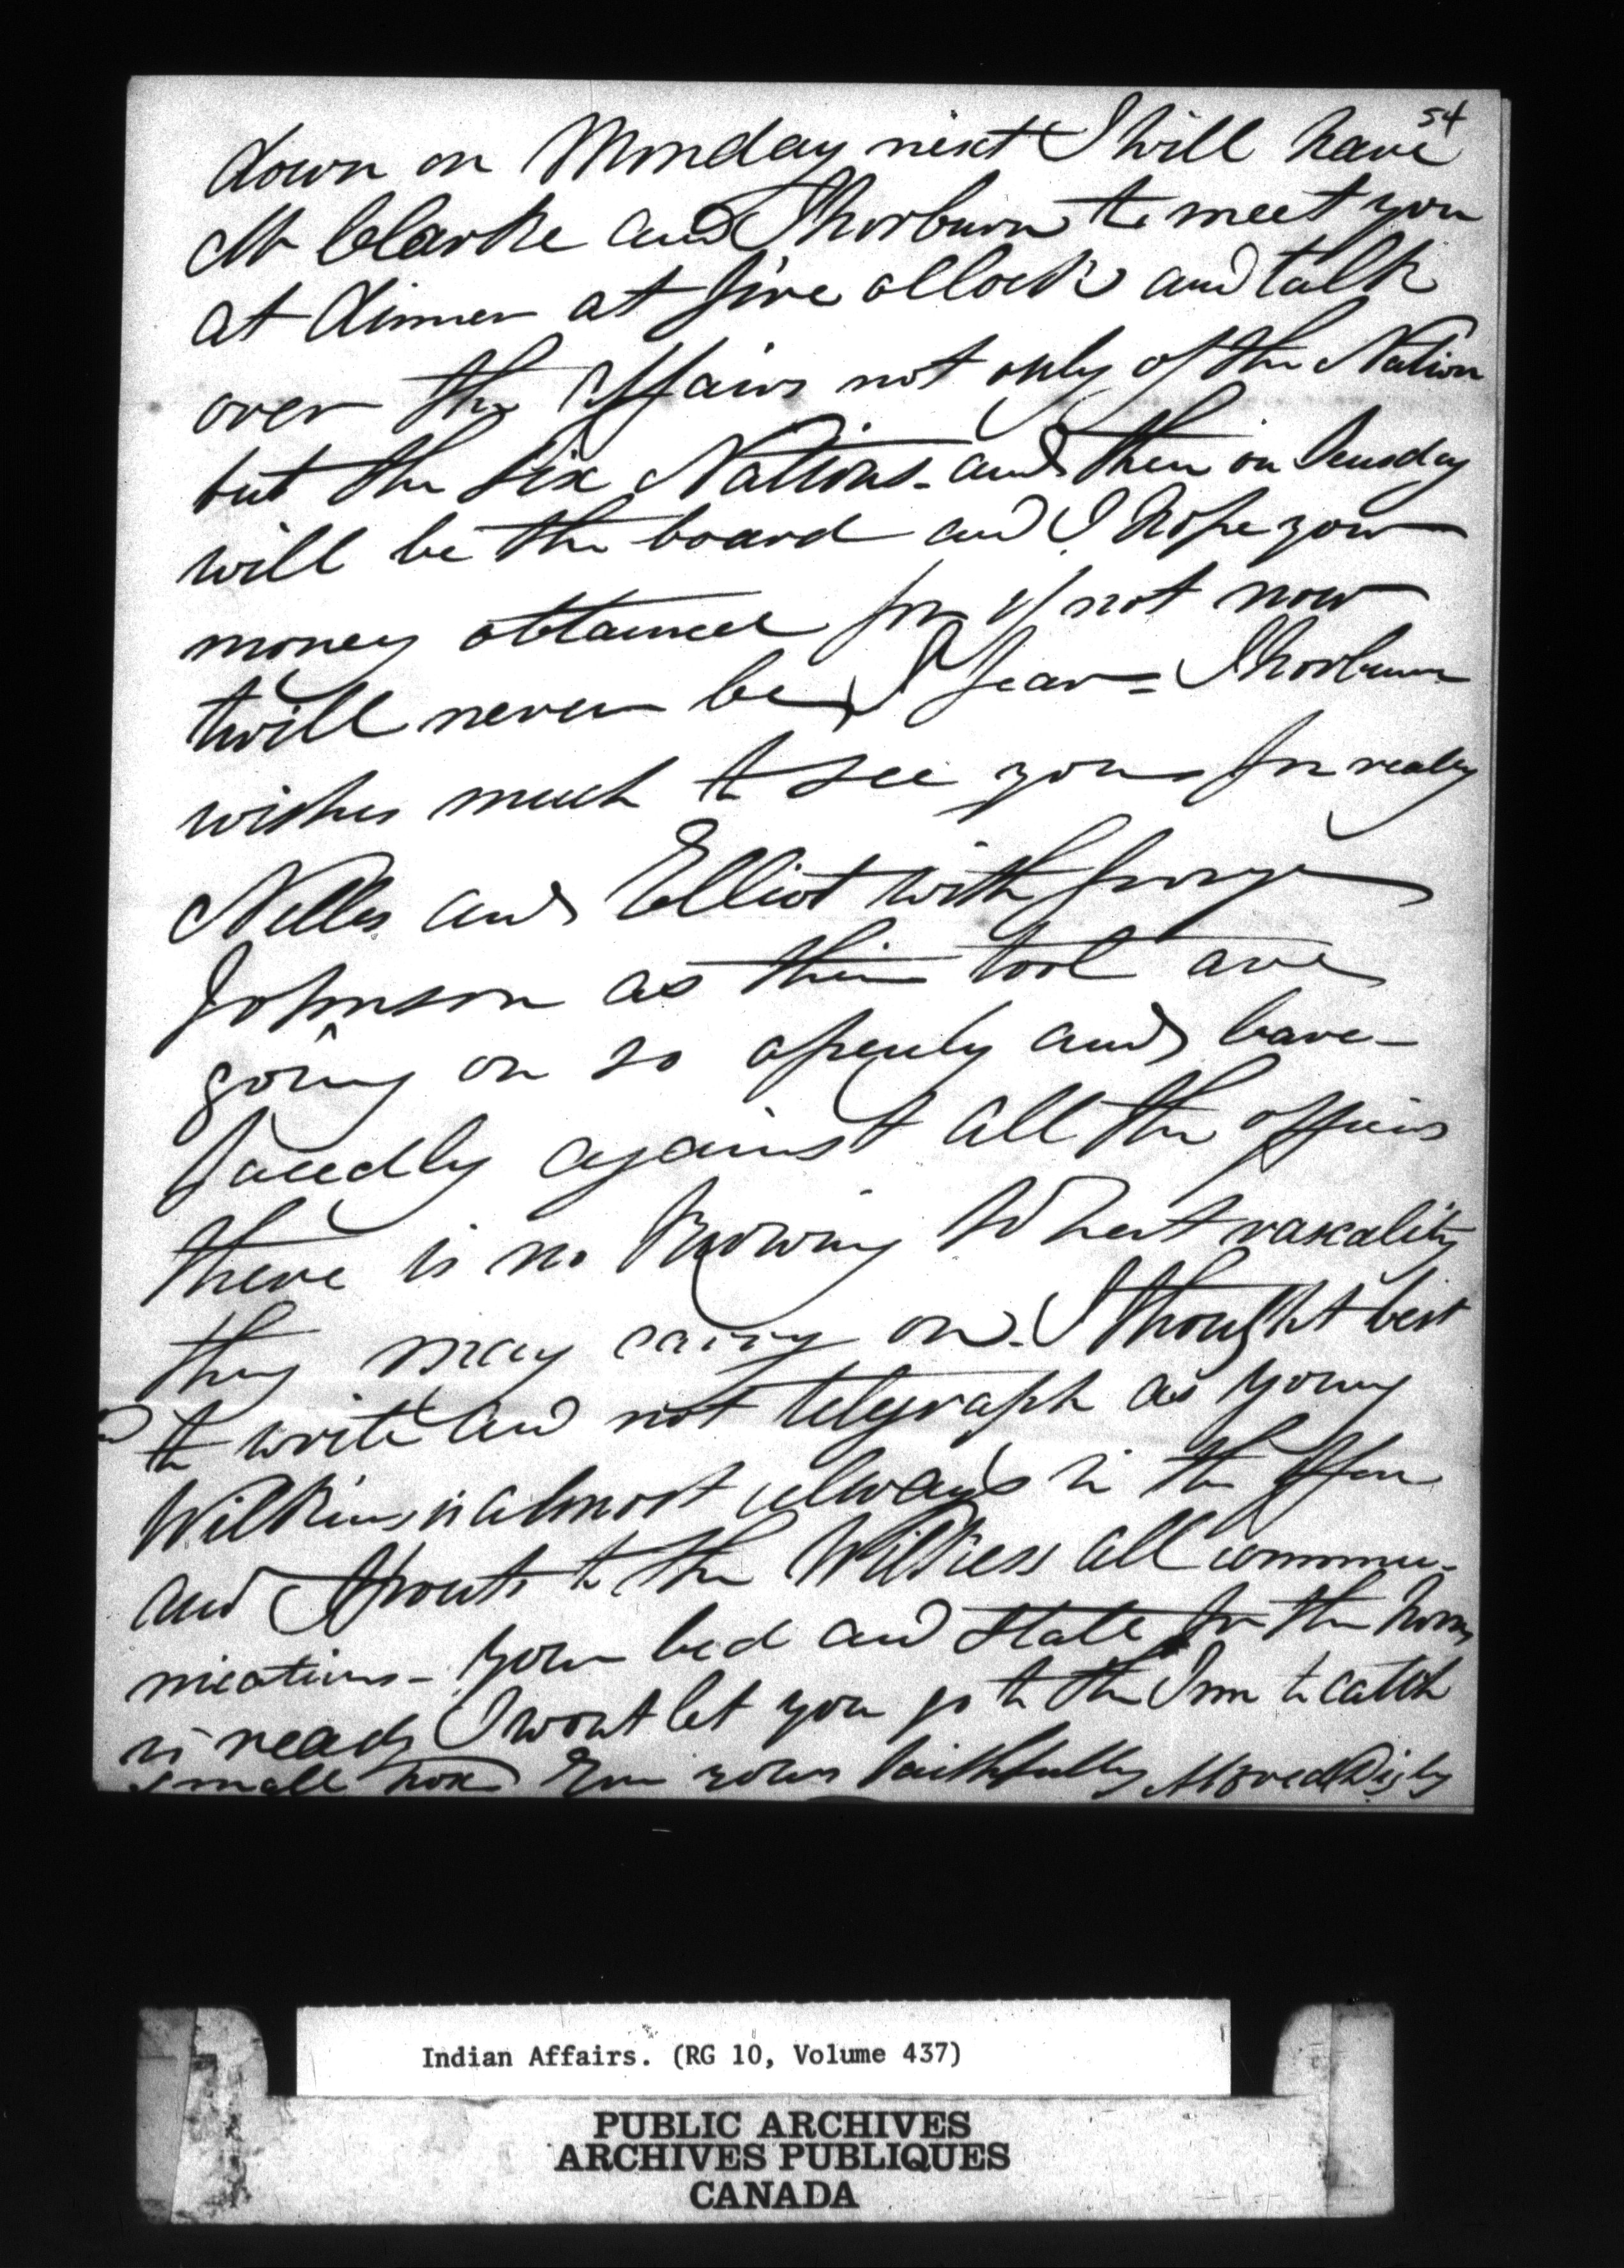 54
down on Monday next I will have
Mr Clarke and Thorburn to meet you
at dinner at five oClock and talk
over the affairs not only of the Nation
but the Six Nations - and then on Teusday
will be the board and I hope your
money obtained for if not now
twill never be I fear = Thorburn
wishes much to see you for really
Nelles and Elliot with George
Johnson as their tool are
going on so openly and bare-
facedly against all the officers
there is no knowing What rascality
they may carry on. I thought best
to write and not telegraph as young
Wilkins is almost always in the office
and to the all commu-
nications - your bed and stall for the horse
is ready I wont let you go to the Inn to catch
small pox Ever yours faithfully Alfred Digby
Indian Affairs. (RG 10, Volume 437)
PUBLIC ARCHIVES
ARCHIVES PUBLIQUES
CANADA